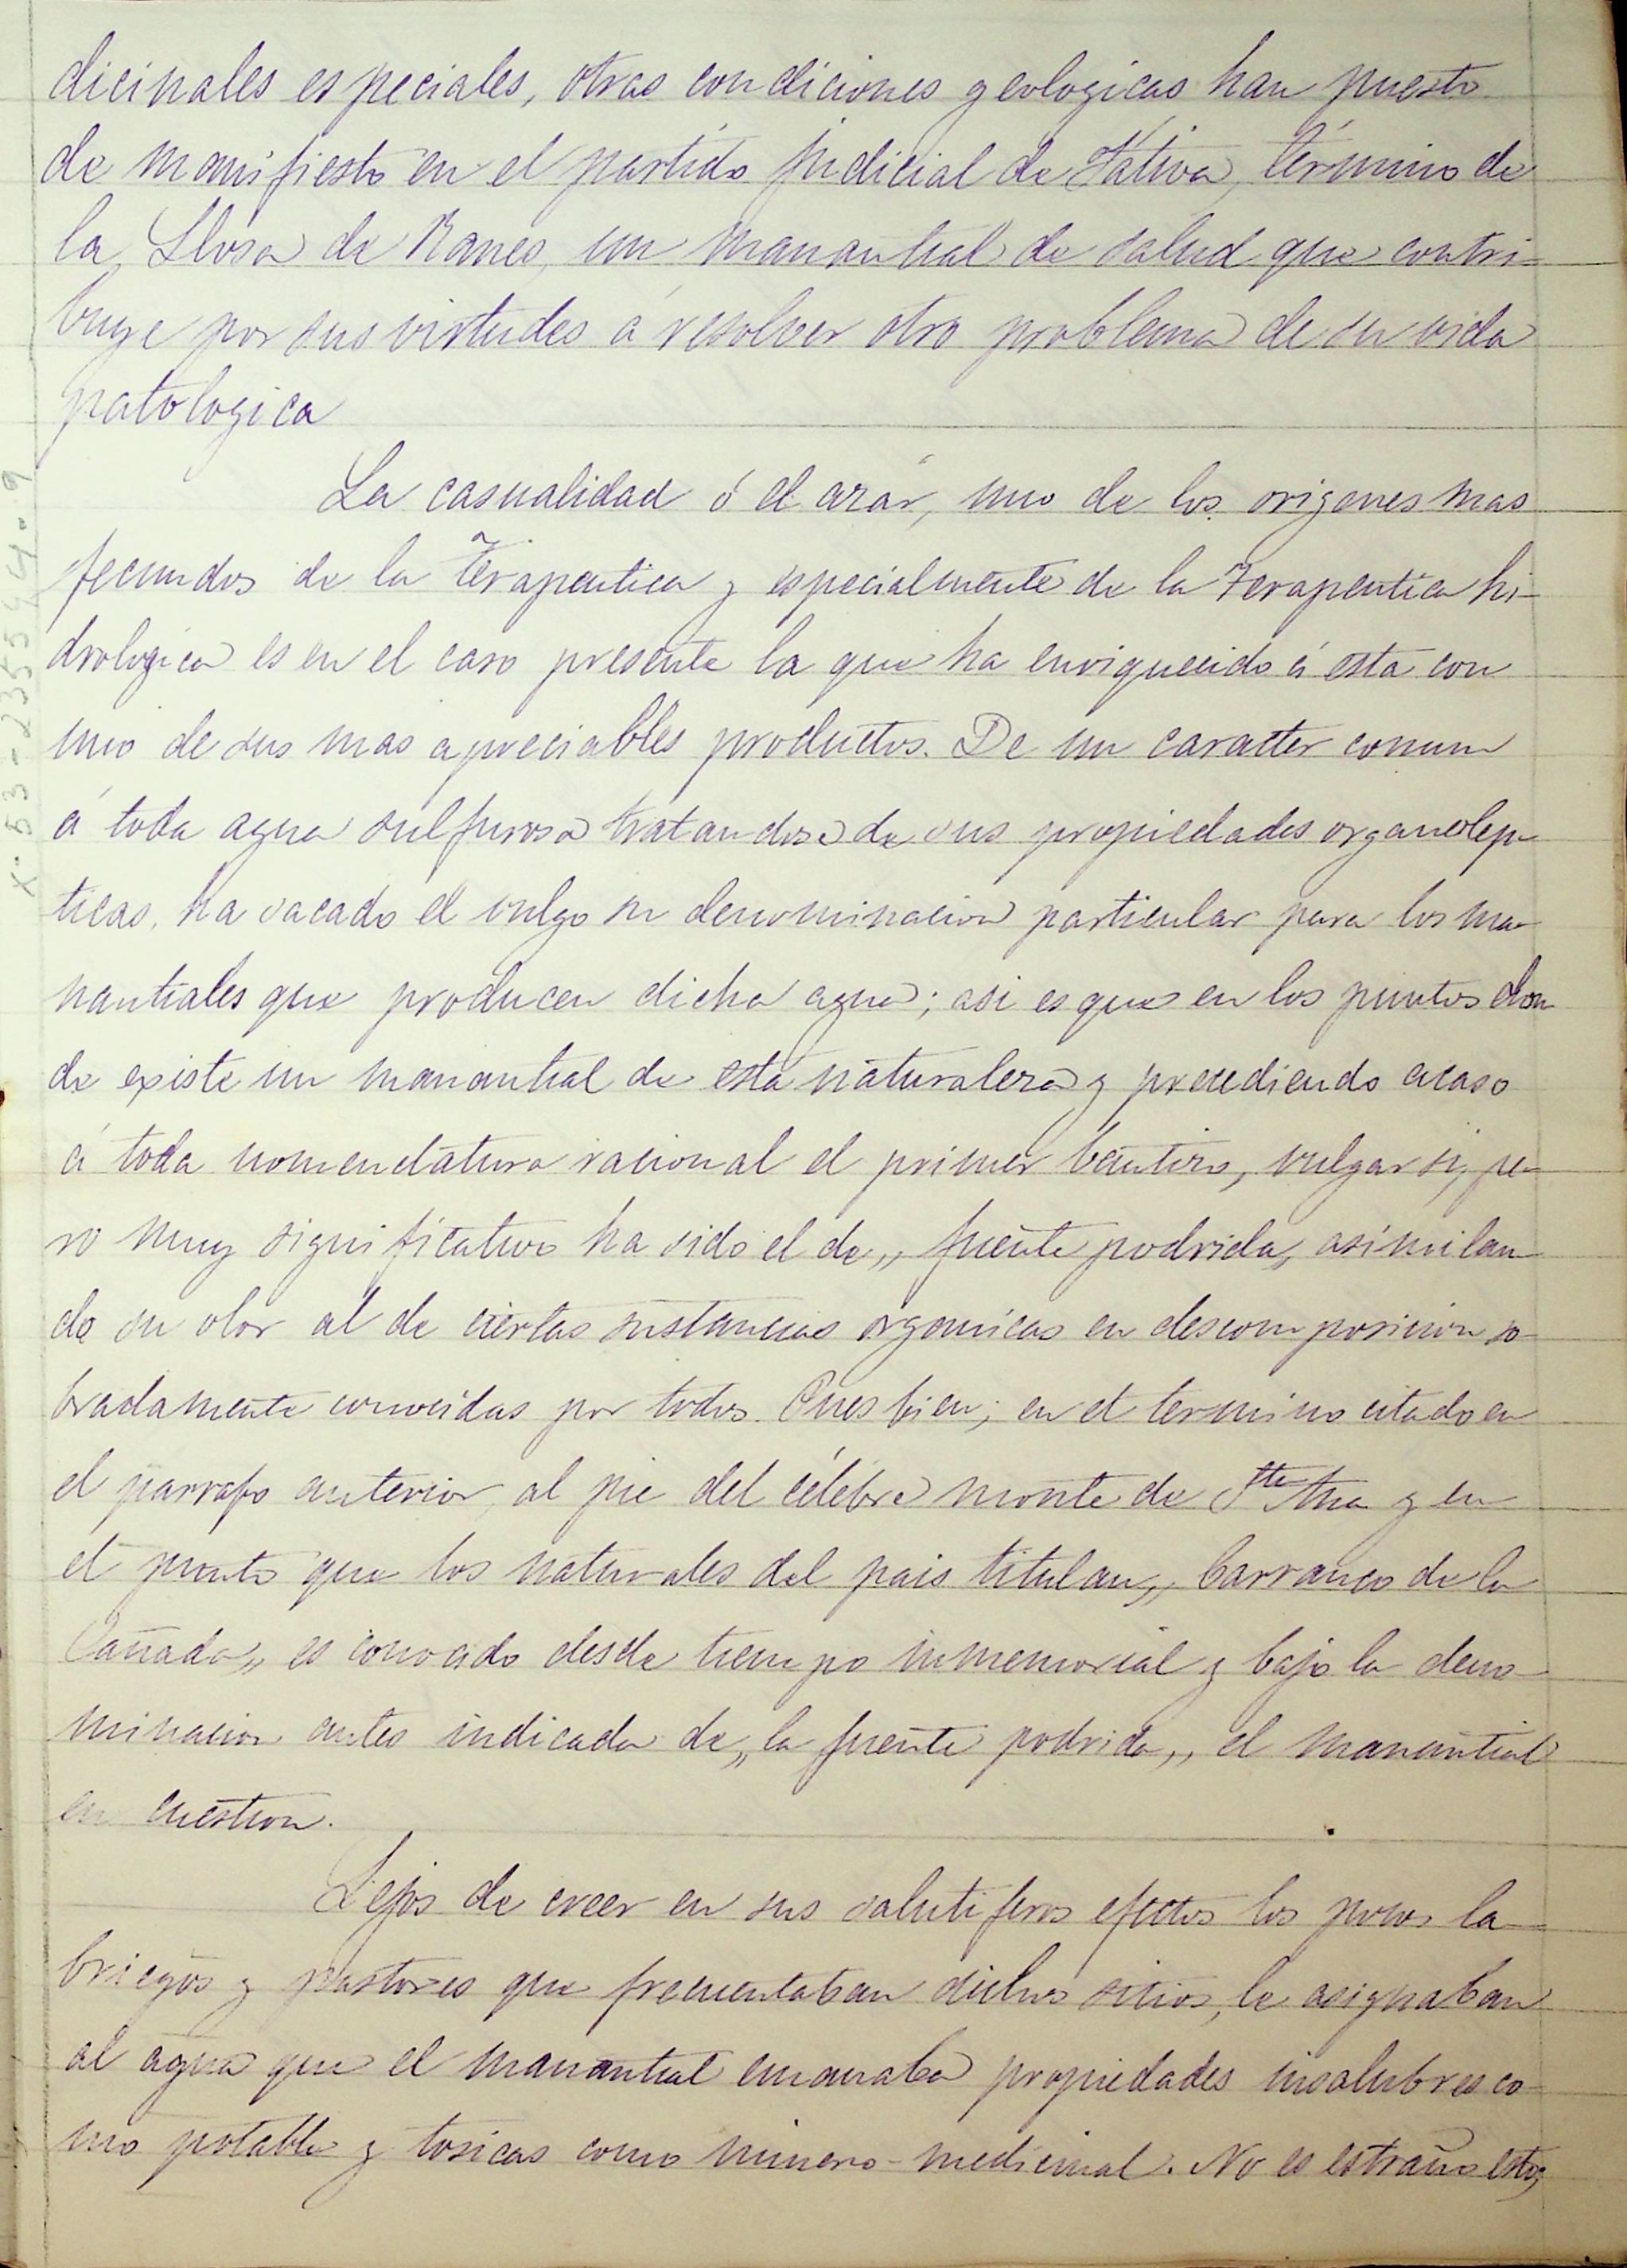 dicinales especiales, otras condiciones geologicas han puesto
de manifiesto en el partido judicial de Játiva, término de
la Llosa de Ranes, un manantial de salud que contri-
buye por sus virtudes á resolver otro problema de su vida
patologica
La casualidad ó el azár, uno de los origenes mas
fecundos de la Terapeutica y especialmente de la Terapeutica hi-
drologica es en el caso presente la que ha enriquecido á esta con
uno de sus mas apreciables productos. De un caracter comun
á toda agua sulfurosa tratandose de sus propiedades organolep-
ticas, ha sacado el vulgo su denominacion particular para los ma-
nantiales que producen dicha agua; asi es que en los puntos don
de existe un manantial de esta naturaleza y precediendo acaso
á toda nomenclatura racional el primer bautizo, vulgar si, pe-
ro muy significativo ha sido el de „ fuente podrida, asimilan-
do su olor al de ciertas sustancias organicas en descomposicion so-
bradamente conocidas por todos. Pues bien; en el termino citado en
el parrafo anterior, al pie del célebre monte de Sta Ana y en
el punto que los naturales del pais titulan „ barranco de la
Cañada „ es conocido desde tiempo inmemorial y bajo la deno-
minacion antes indicada de „ la fuente podrida „ el manantial
en cuestion.
Lejos de creer en sus salutiferos efectos los pocos la-
briegos y pastores que frecuentaban dichos sitios, le asignaban
al agua que el manantial emanaba propiedades insalubres co-
mo potable y tosicas como minero-medicinal. No es estraño esto;
X-53-235544-9